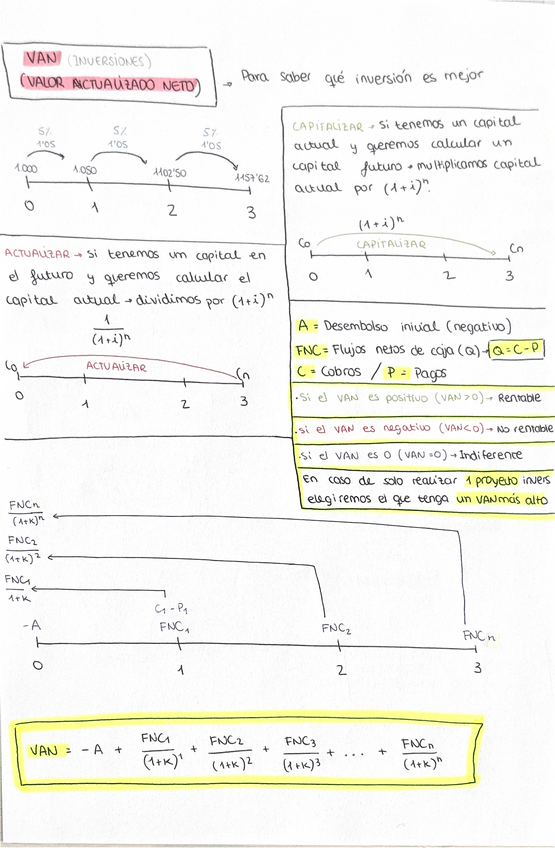 VAN (INVERSIONES)
(VALOR ACTUALIZADO NETO) → Para saber qué inversión es mejor
5% 5% 5%
1'05 1'05 1'05
1.000 1.050 1102'50 1157'62
0 1 2 3
CAPITALIZAR → si tenemos un capital
actual y queremos calcular un
capital futuro → multiplicamos capital
actual por (1+i)ⁿ.
(1+i)ⁿ
Co CAPITALIZAR Cn
0 1 2 3
ACTUALIZAR → si tenemos un capital en
el futuro y queremos calcular el
capital actual → dividimos por (1+i)ⁿ
1
(1+i)ⁿ
Co ACTUALIZAR Cn
0 1 2 3
A = Desembolso inicial (negativo)
FNC = Flujos netos de caja (Q) → Q=C-P
C = Cobros / P = Pagos
· Si el VAN es positivo (VAN>0) → Rentable
· si el VAN es negativo (VAN<0) → No rentable
· si el VAN es 0 (VAN=0) → Indiferente
En caso de solo realizar 1 proyecto invers
elegiremos el que tenga un VAN más alto
FNCn
(1+K)ⁿ
FNC2
(1+K)²
FNC1
1+K
C1-P1
-A FNC1 FNC2 FNCn
0 1 2 3
VAN = -A + FNC1/(1+K)¹ + FNC2/(1+K)² + FNC3/(1+K)³ + ... + FNCn/(1+K)ⁿ